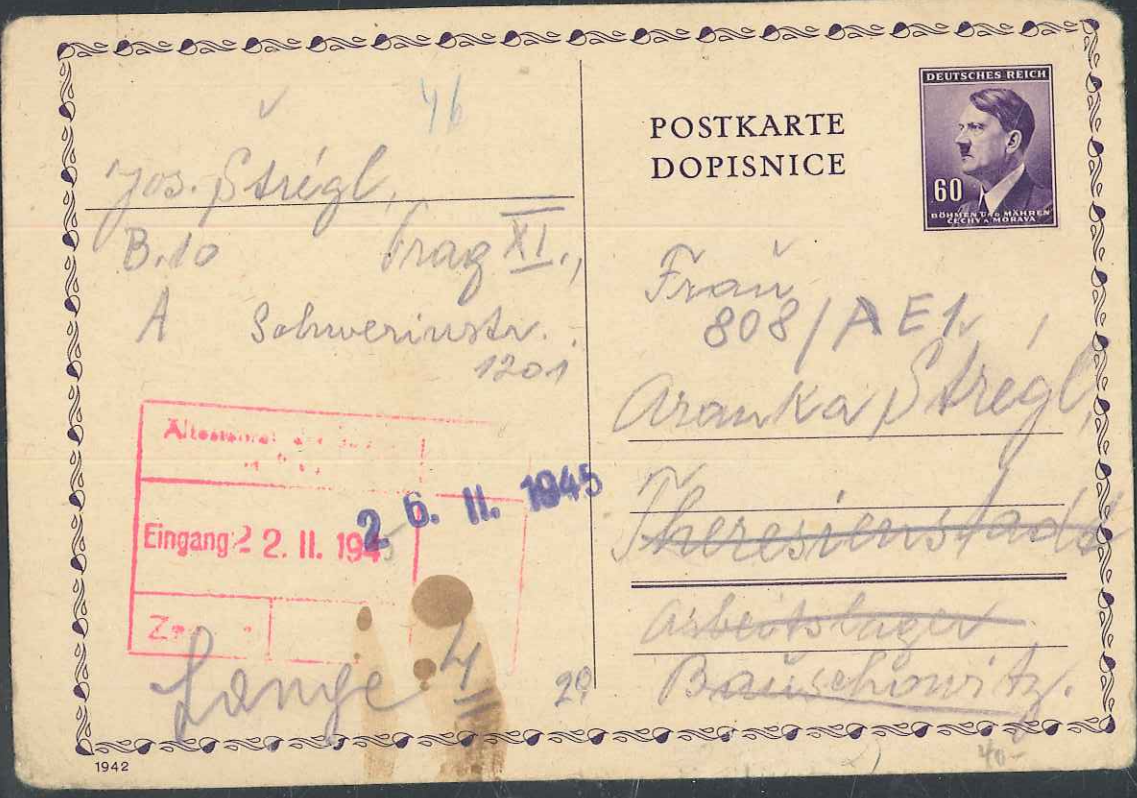 46
Jos. Strégl,
B.10 Prag XI.,
A Schwerinstr.
1201
Eingang 22. II. 194
26. II. 1945
Lange 4
29
1942
POSTKARTE
DOPISNICE
DEUTSCHES REICH
60
BÖHMEN UND MÄHREN
ČECHY A MORAVA
Frau
808/A E1.
Aranka Strégl,
Theresienstadt
Arbeitslager
Bauschowitz.
40-